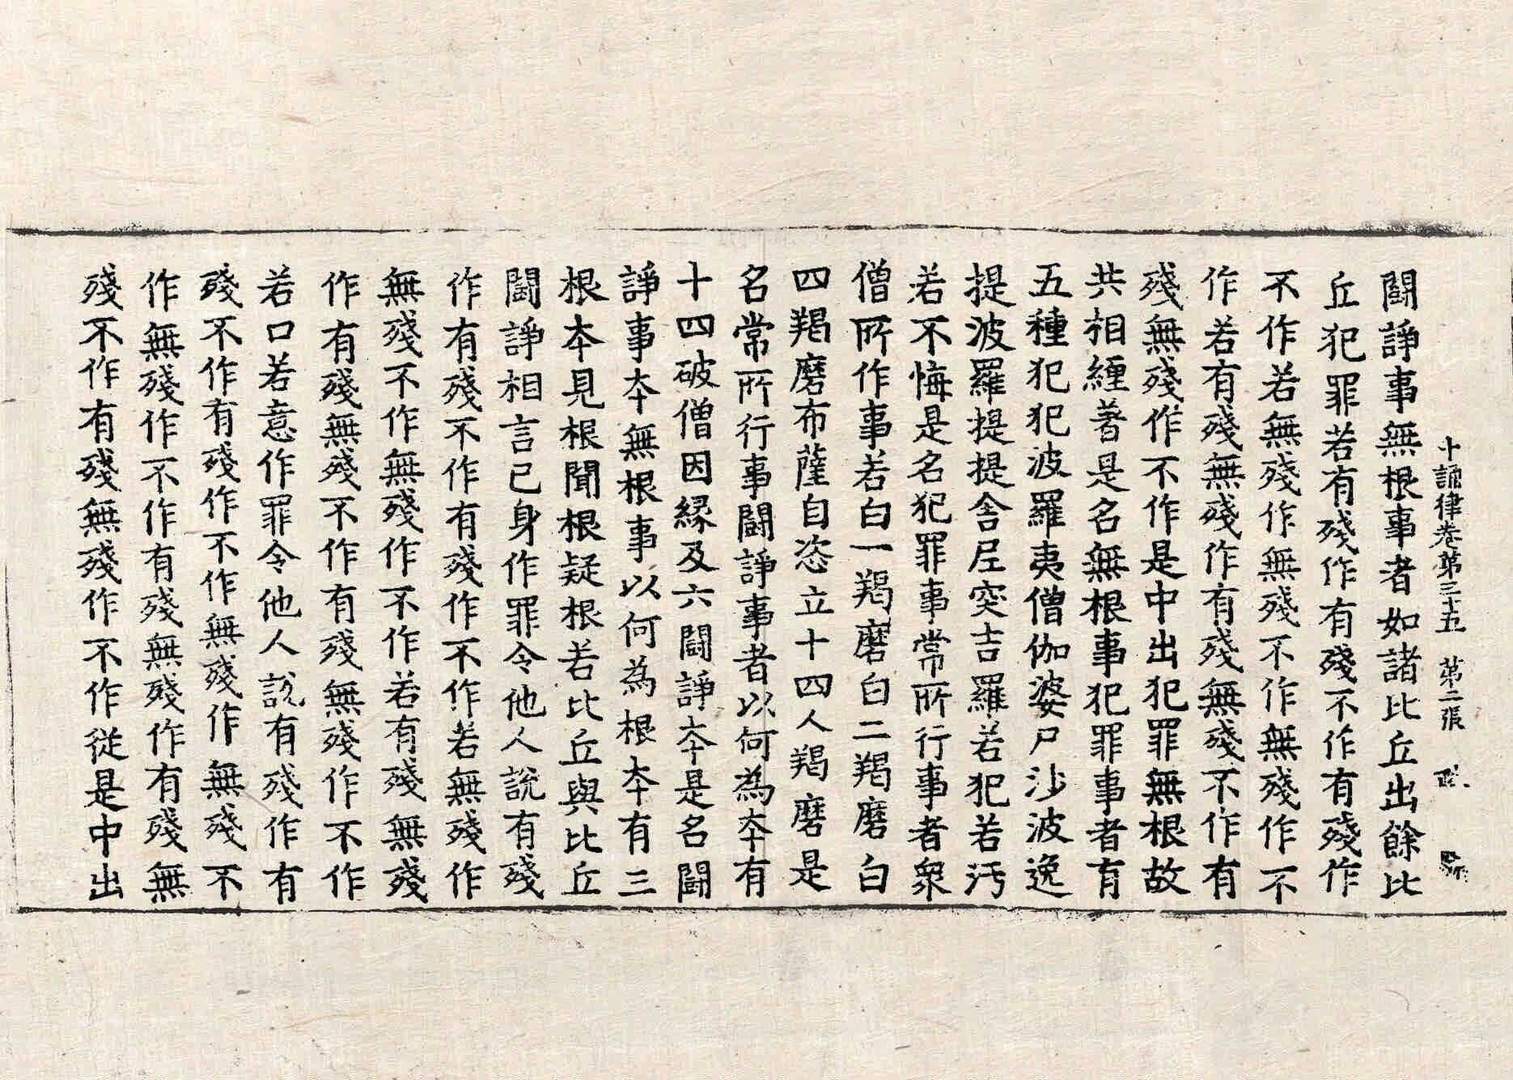 十誦律卷第三十五 第二張
鬪諍事無根事者如諸比丘出餘比
丘犯罪若有殘作有殘不作有殘作
不作若無殘作無殘不作無殘作不
作若有殘無殘作有殘無殘不作有
殘無殘作不作是中出犯罪無根故
共相纏著是名無根事犯罪事者有
五種犯犯波羅夷僧伽婆尸沙波逸
提波羅提提舍尼突吉羅若犯若汚
若不悔是名犯罪事常所行事者衆
僧所作事若白一羯磨白二羯磨白
四羯磨布薩自恣立十四人羯磨是
名常所行事鬪諍事者以何為本有
十四破僧因緣及六鬪諍本是名鬪
諍事本無根事以何為根本有三
根本見根聞根疑根若比丘與比丘
鬪諍相言已身作罪令他人說有殘
作有殘不作有殘作不作若無殘作
無殘不作無殘作不作若有殘無殘
作有殘無殘不作有殘無殘作不作
若口若意作罪令他人說有殘作有
殘不作有殘作不作無殘作無殘不
作無殘作不作有殘無殘作有殘無
殘不作有殘無殘作不作從是中出